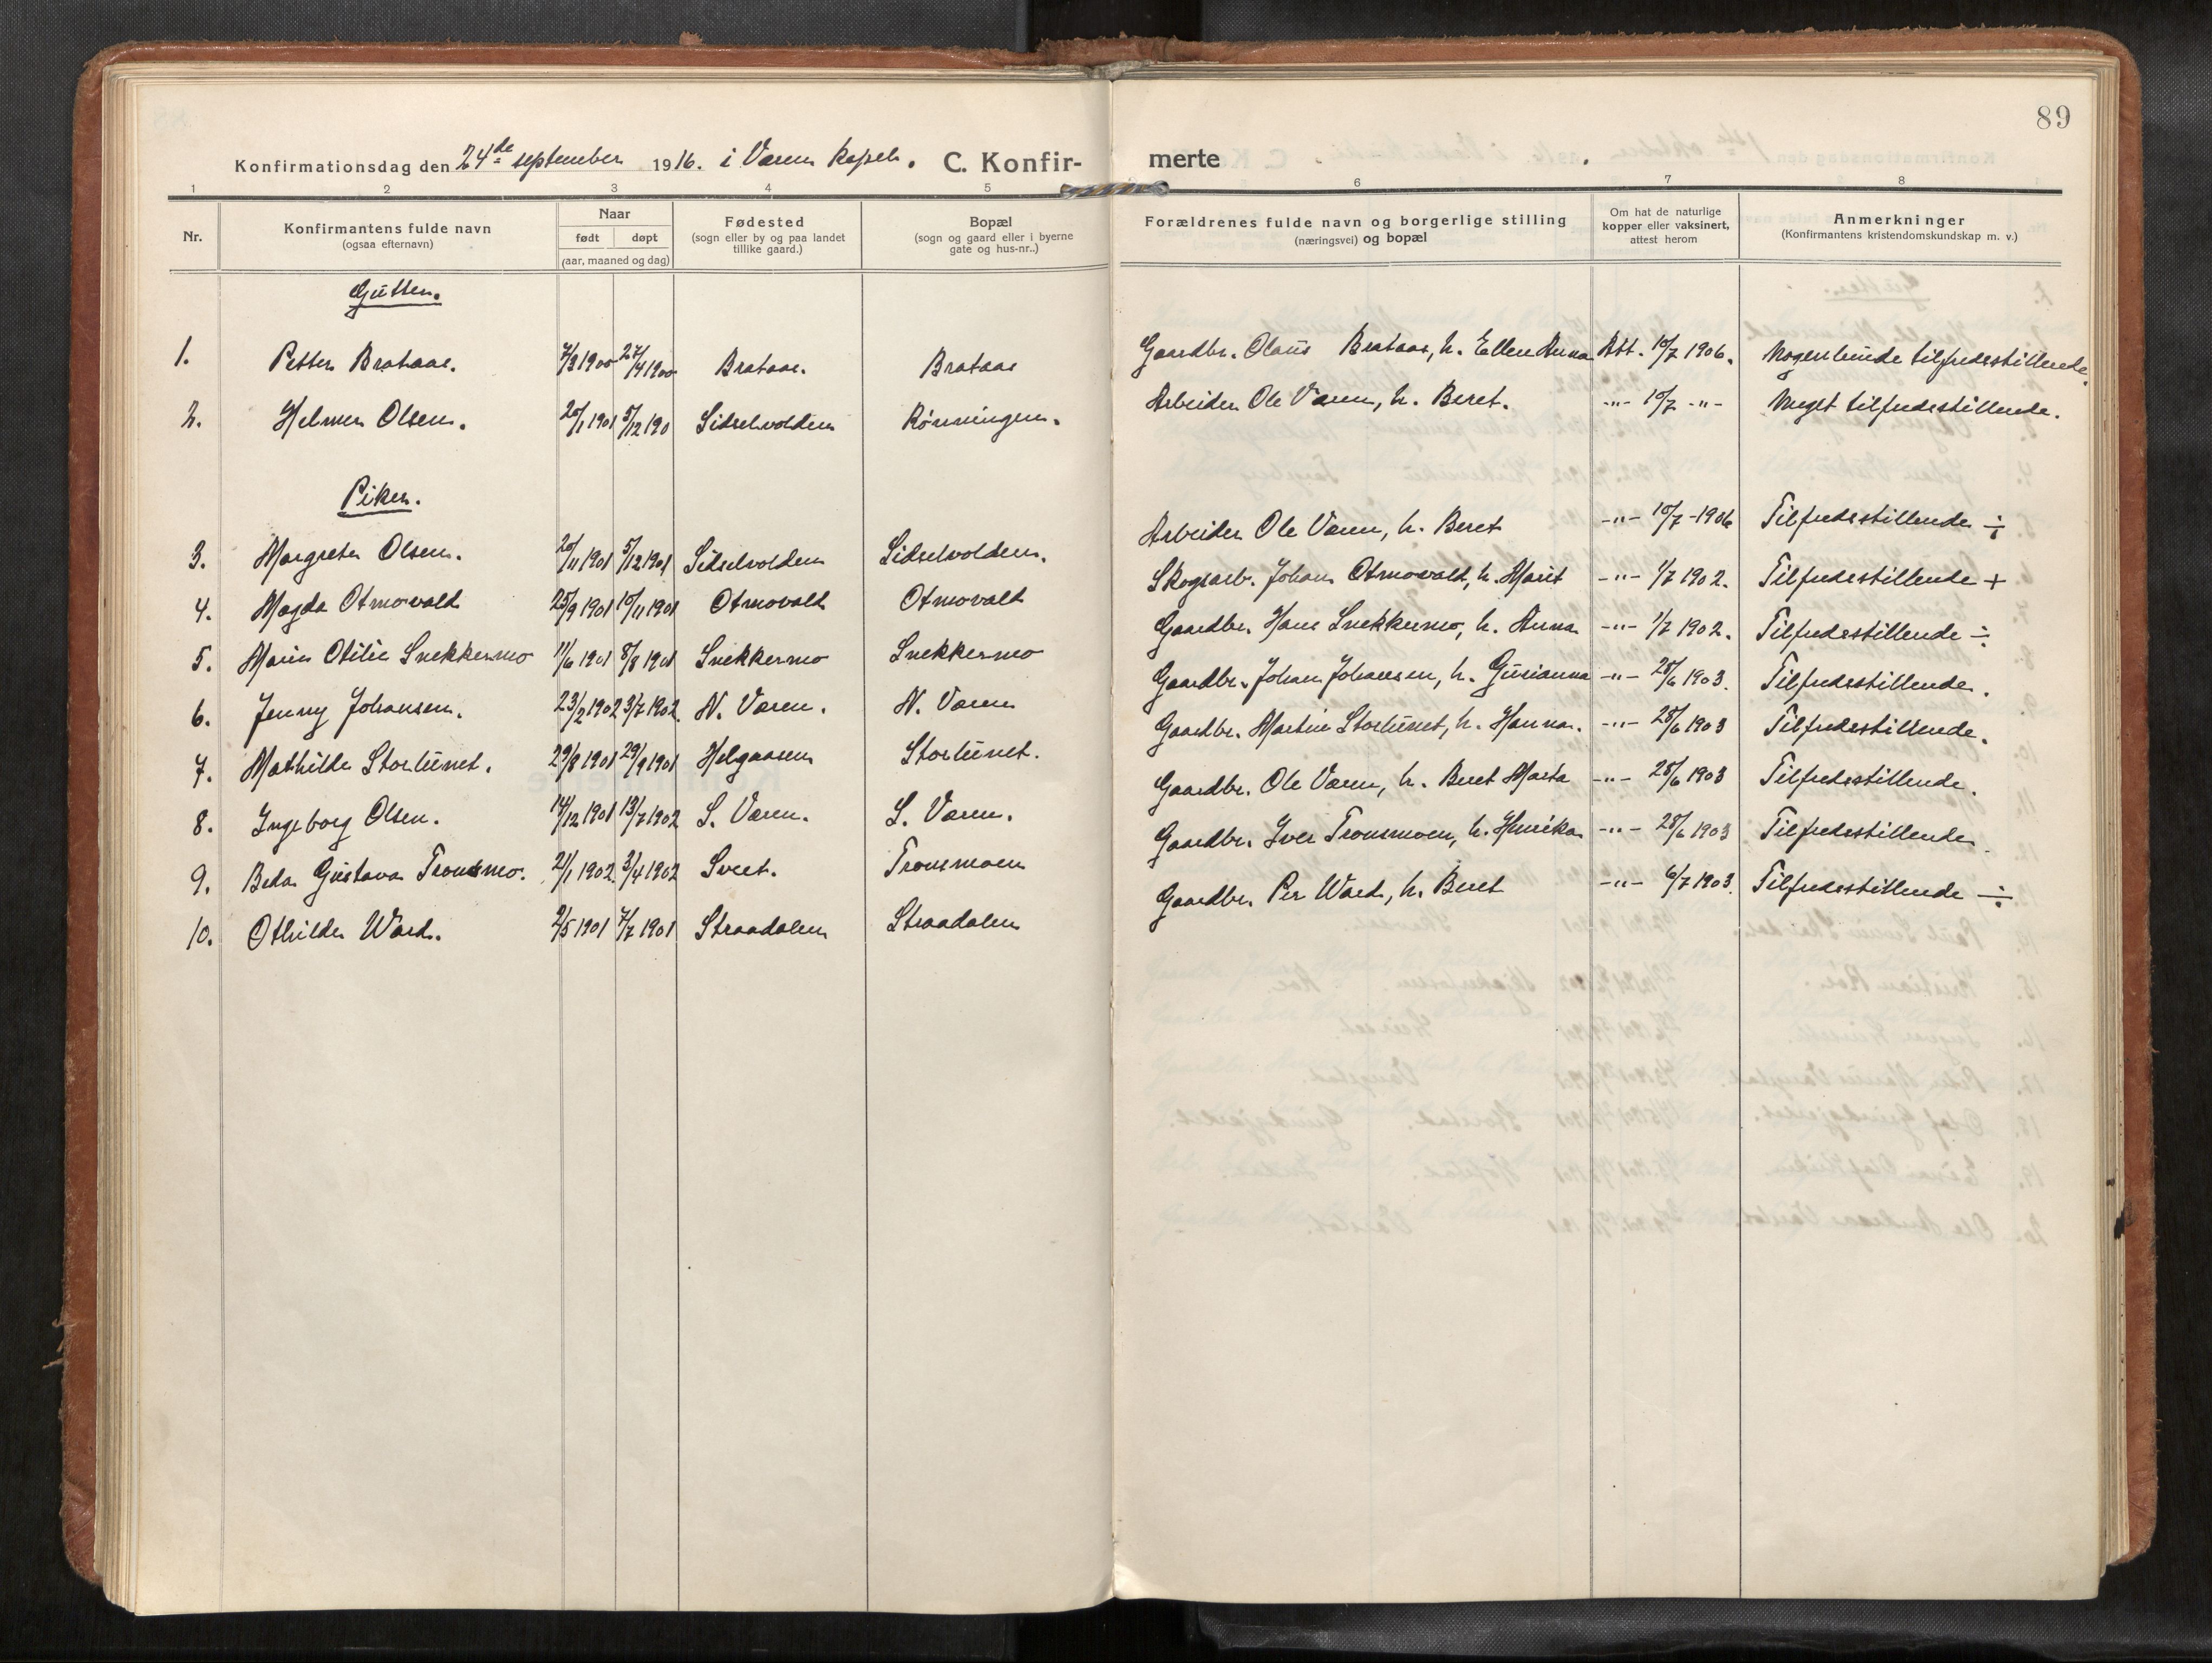 89
Konfirmationsdag den 24de september 1916. i Væren kapel. C. Konfir- merte
1 2 3 4 5 6 7 8
Nr. Konfirmantens fulde navn (ogsaa efternavn) Naar født døpt (aar, maaned og dag) Fødested (sogn eller by og paa landet tillike gaard.) Bopæl (sogn og gaard eller i byerne gate og hus-nr..) Forældrenes fulde navn og borgerlige stilling (næringsvei) og bopæl Om hat de naturlige kopper eller vaksinert, attest herom Anmerkninger (Konfirmantens kristendomskundskap m. v.)
Gutter.
1. Petter Brataas. 7/3 1900 27/4 1900 Brataas. Brataas Gaardbr. Olaus Brataas, h. Ellen Anna Att. 10/7 1906. Nogenlunde tilfredsstillende.
2. Helmer Olsen. 20/1 1901 5/12 190 Sidselvolden Rønningen. Arbeider Ole Væren, h. Beret. -"- 10/7 -"- Meget tilfredsstillende.
Piker.
3. Margrete Olsen. 20/11 1901 5/12 1901 Sidselvolden Sidselvolden. Arbeider Ole Væren, h. Beret -"- 10/7 - 1906 Tilfredsstillende ÷
4. Magda Otmovald 25/9 1901 10/11 1901 Otmovald Otmovald Skogsarb. Johan Otmovald, h. Marit -"- 1/7 1902. Tilfredsstillende +
5. Marie Otilie Snekkermo 11/6 1901 8/8 1901 Snekkermo Snekkermo Gaardbr. Hans Snekkermo, h. Anna -"- 1/7 1902. Tilfredsstillende ÷
6. Jenny Johansen. 23/2 1902 3/7 1902. N. Væren. N. Væren Gaardbr. Johan Johansen, h. Gusianna -"- 28/6 1903. Tilfredsstillende.
7. Mathilde Stortunet. 29/8 1901 29/9 1901 Helgaasen Stortunet. Gaardbr. Martin Stortunet, h. Hanna. -"- 28/6 1903 Tilfredsstillende.
8. Ingeborg Olsen. 14/12 1901 13/7 1902 S. Væren. S. Væren. Gaardbr. Ole Væren, h. Beret Marta -"- 28/6 1903 Tilfredsstillende.
9. Beda Gustava Tronsmo. 21/1 1902. 3/4 1902 Sveet. Tronsmoen Gaardbr. Iver Tronsmoen, h. Henrika -"- 28/6 1903 Tilfredsstillende.
10. Othilde Ward. 2/5 1901 7/7 1901 Straadalen Straadalen Gaardbr. Per Ward, h. Beret -"- 6/7 1903. Tilfredsstillende ÷